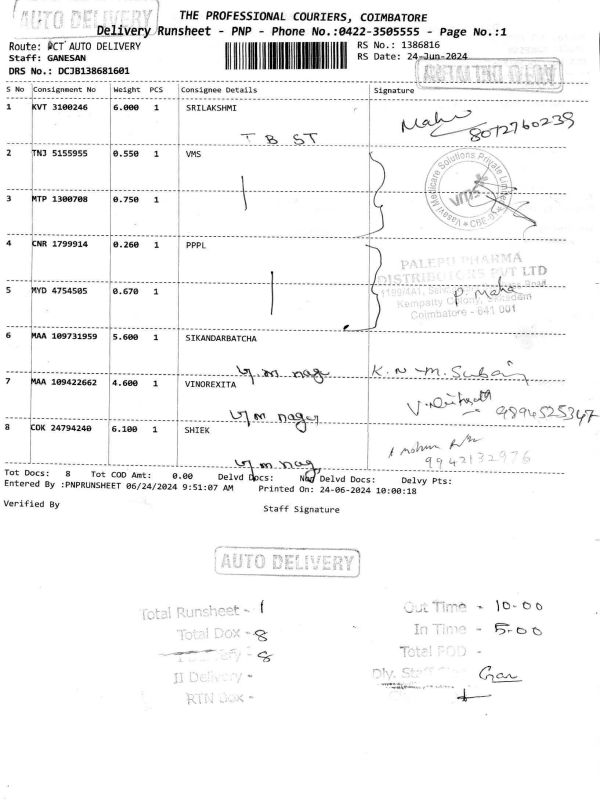 AUTO DELIVERY
THE PROFESSIONAL COURIERS, COIMBATORE
Delivery Runsheet - PNP - Phone No.:0422-3505555 - Page No.:1
Route: ACT AUTO DELIVERY
RS No.: 1386816
Staff: GANESAN
RS Date: 24-Jun-2024
DRS No.: DCJB138681601
AUTO DELIVERY
S No Consignment No Weight PCS Consignee Details Signature
1 KVT 3100246 6.000 1 SRILAKSHMI
Maha
8072760239
T B ST
2 TNJ 5155955 0.550 1 VMS
Vasavi Medicare Solutions Private Limited
vms
* CBE-01 *
3 MTP 1300708 0.750 1
4 CNR 1799914 0.260 1 PPPL
PALEPU PHARMA
DISTRIBUTORS PVT LTD
Kempatty Colony,
Coimbatore - 641 001
P. Maha
5 MYD 4754505 0.670 1
6 MAA 109731959 5.600 1 SIKANDARBATCHA
v.m nag
K. N. M. Subair
7 MAA 109422662 4.600 1 VINOREXITA
9894525347
v m nagar
8 COK 24794240 6.100 1 SHIEK
9942132976
v m nag
Tot Docs: 8 Tot COD Amt: 0.00 Delvd Docs: Not Delvd Docs: Delvy Pts:
Entered By :PNPRUNSHEET 06/24/2024 9:51:07 AM Printed On: 24-06-2024 10:00:18
Verified By
Staff Signature
AUTO DELIVERY
Total Runsheet - 1
Out Time - 10-00
Total Dox - 8
In Time - 5-00
- 8
Total POD -
II Delivery -
Dly. Staff
RTN Dox -